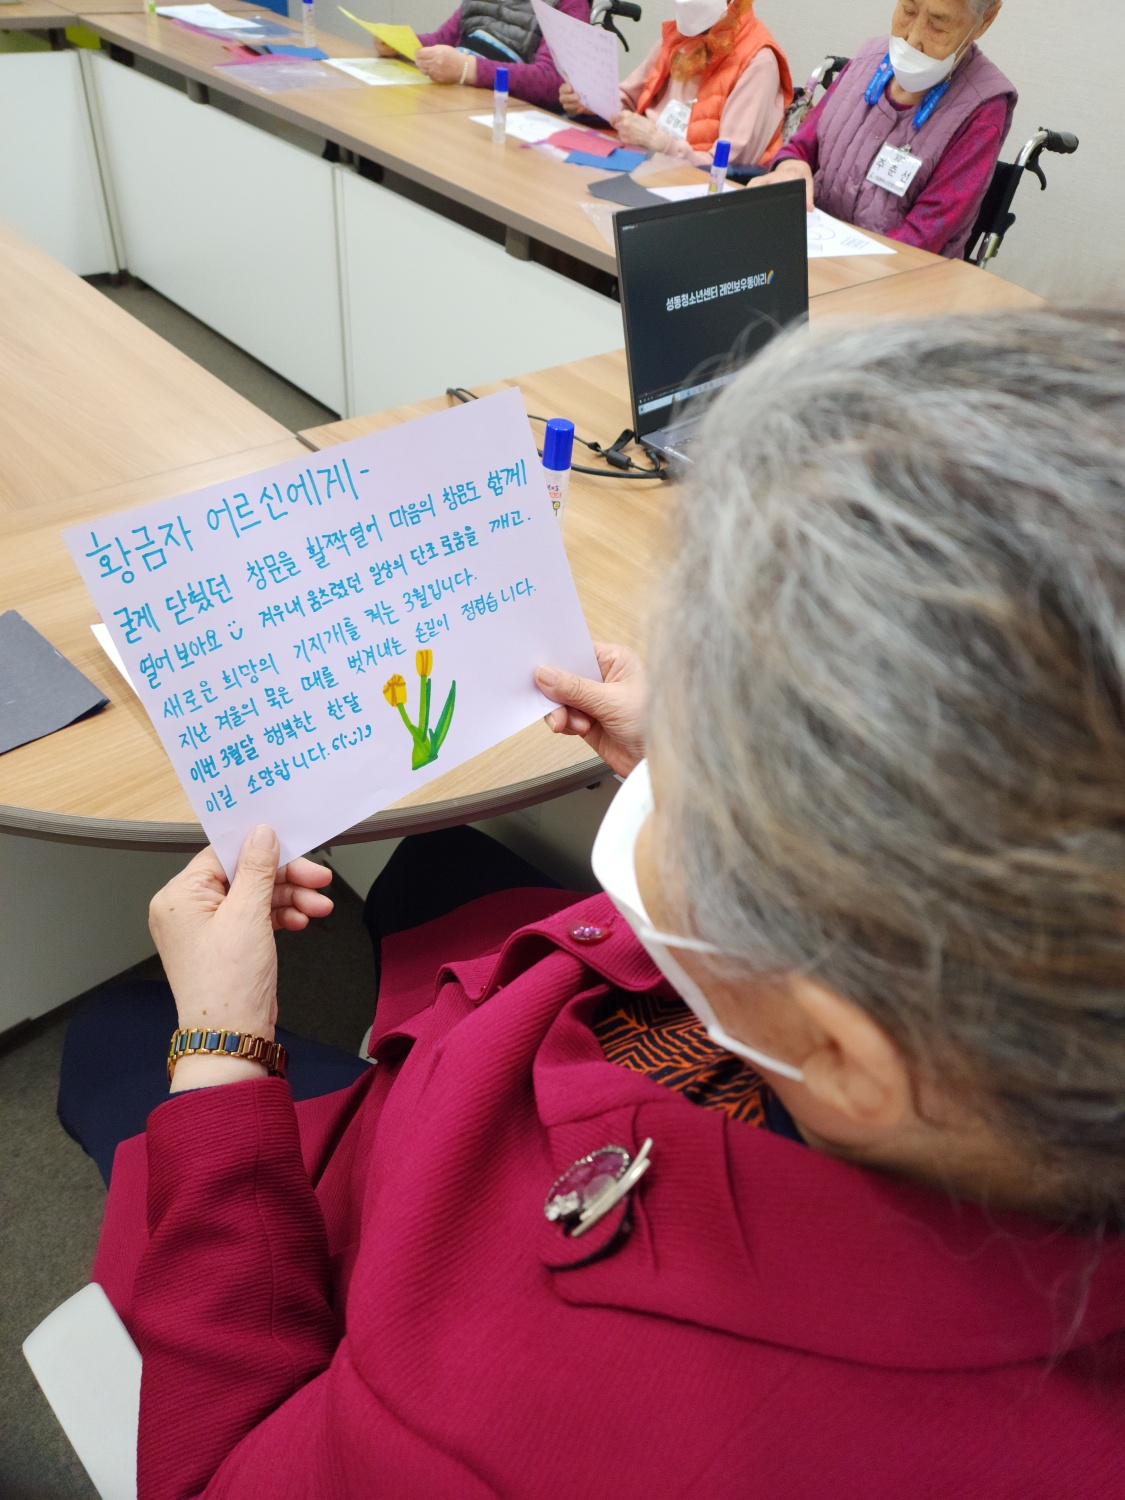 성동청소년센터 레인보우동아리
주준선
황금자 어르신에게-
굳게 닫혔던 창문을 활짝열어 마음의 창문도 함께
열어보아요 겨우내 움츠렸던 일상의 단조로움을 깨고.
새로운 희망의 기지개를 켜는 3월입니다.
지난 겨울의 묵은 때를 벗겨내는 손길이 정겹습니다.
이번 3월달 행복한 한달
이길 소망합니다.